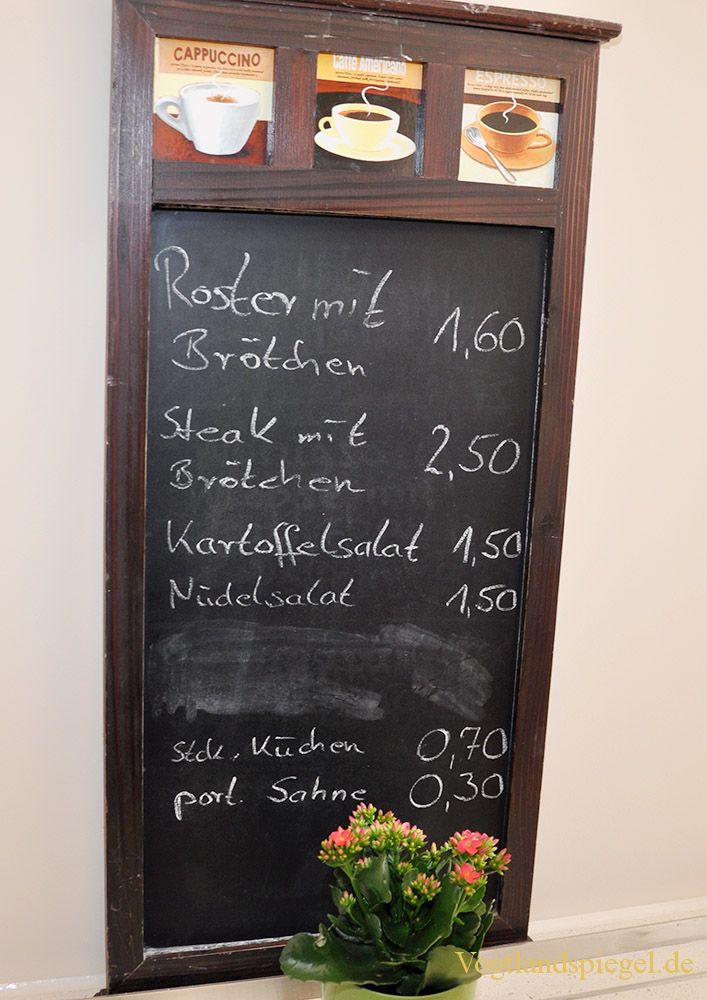 CAPPUCCINO
Caffè Americano
ESPRESSO
Roster mit
Brötchen 1,60
Steak mit
Brötchen 2,50
Kartoffelsalat 1,50
Nudelsalat 1,50
Stck. Kuchen 0,70
port. Sahne 0,30
Vogtlandspiegel.de